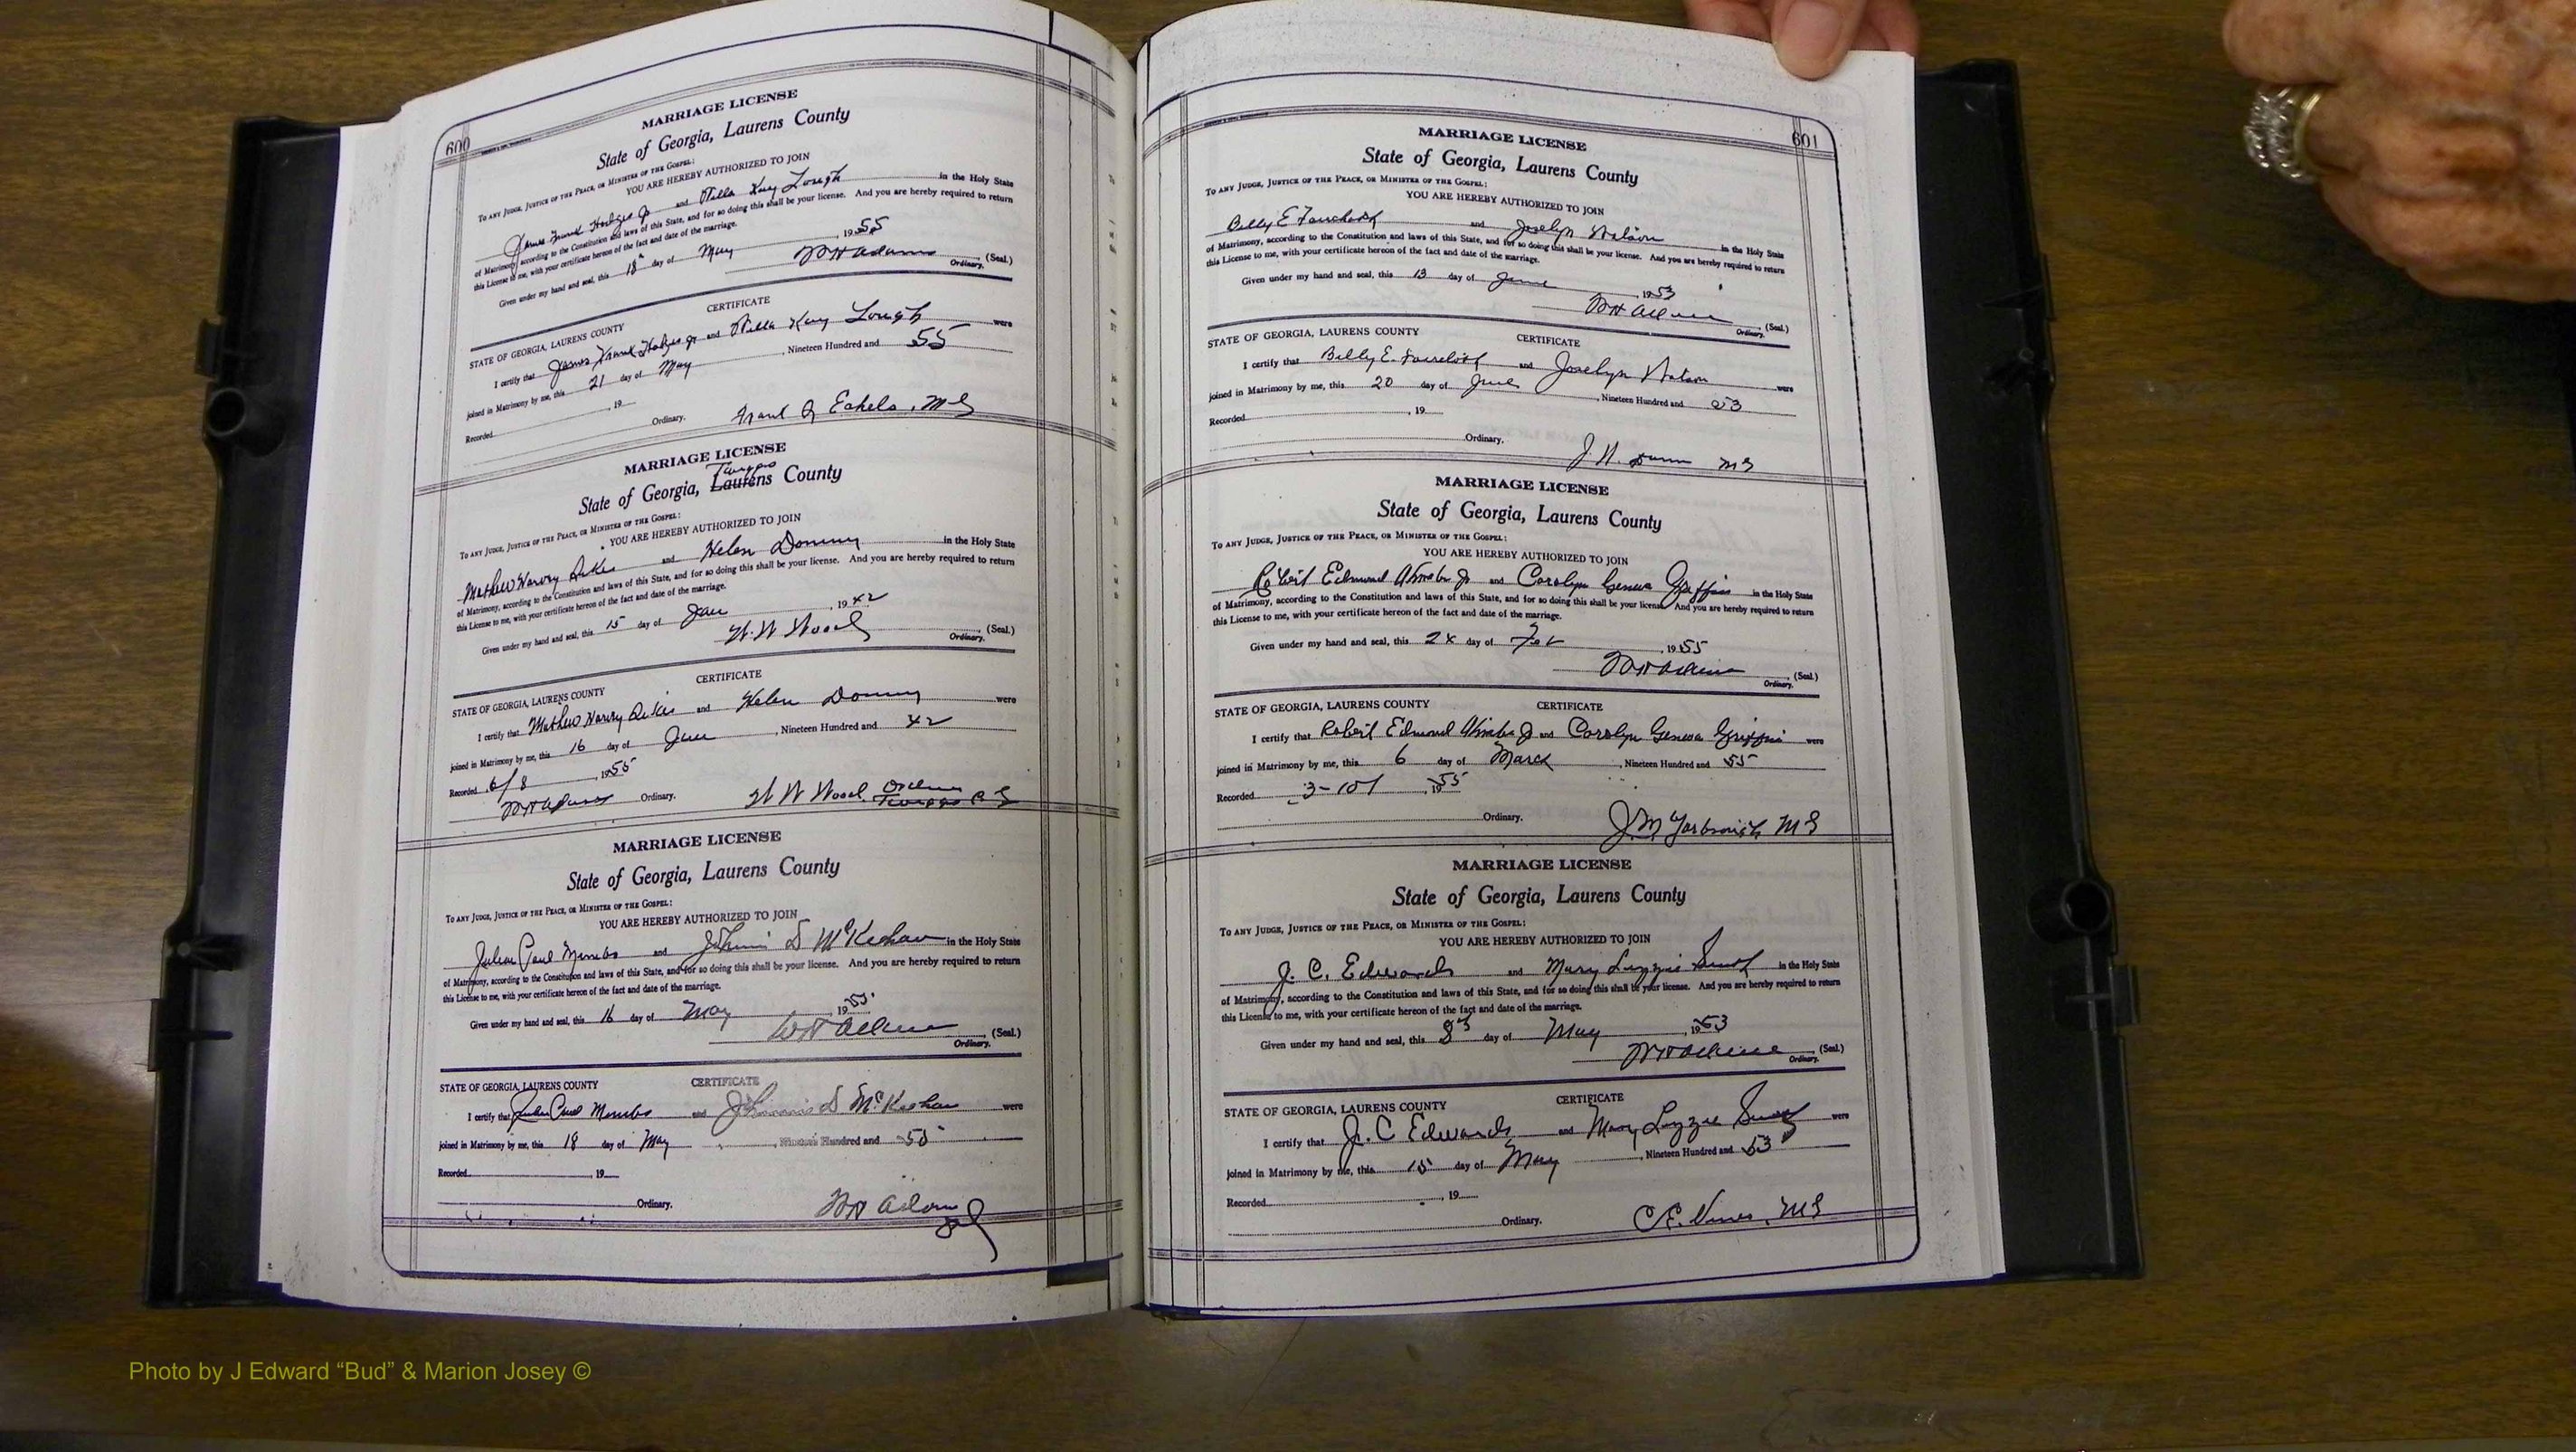 600
MARRIAGE LICENSE
State of Georgia, Laurens County
TO ANY JUDGE, JUSTICE OF THE PEACE, OR MINISTER OF THE GOSPEL:
YOU ARE HEREBY AUTHORIZED TO JOIN
James Frank Hodges Jr and Willa Kay Lough in the Holy State
of Matrimony, according to the Constitution and laws of this State, and for so doing this shall be your license. And you are hereby required to return
this License to me, with your certificate hereon of the fact and date of the marriage.
Given under my hand and seal, this 18" day of May, 1955
W H Adams (Seal.)
Ordinary.
CERTIFICATE
STATE OF GEORGIA, LAURENS COUNTY
I certify that James Frank Hodges Jr and Willa Kay Lough were
joined in Matrimony by me, this 21 day of May, Nineteen Hundred and 55
Recorded, 19
Ordinary. Frank Q Echels, MG
MARRIAGE LICENSE
Twiggs
State of Georgia, Laurens County
TO ANY JUDGE, JUSTICE OF THE PEACE, OR MINISTER OF THE GOSPEL:
YOU ARE HEREBY AUTHORIZED TO JOIN
Mathew Harvy and Helen Dominy in the Holy State
of Matrimony, according to the Constitution and laws of this State, and for so doing this shall be your license. And you are hereby required to return
this License to me, with your certificate hereon of the fact and date of the marriage.
Given under my hand and seal, this 15 day of Jan, 1942
W. W Wood (Seal.)
Ordinary.
CERTIFICATE
STATE OF GEORGIA, LAURENS COUNTY
I certify that Mathew Harvy and Helen Dominy were
joined in Matrimony by me, this 16 day of Jan, Nineteen Hundred and 42
Recorded 6/8, 1955
W H Adams Ordinary. W W Wood, Twiggs
MARRIAGE LICENSE
State of Georgia, Laurens County
TO ANY JUDGE, JUSTICE OF THE PEACE, OR MINISTER OF THE GOSPEL:
YOU ARE HEREBY AUTHORIZED TO JOIN
Julian Paul Mimbs and Johnnie D McKeehan in the Holy State
of Matrimony, according to the Constitution and laws of this State, and for so doing this shall be your license. And you are hereby required to return
this License to me, with your certificate hereon of the fact and date of the marriage.
Given under my hand and seal, this 16 day of May, 1955
W H Adams (Seal.)
Ordinary.
CERTIFICATE
STATE OF GEORGIA, LAURENS COUNTY
I certify that Julian Paul Mimbs and Johnnie D McKeehan were
joined in Matrimony by me, this 18 day of May, Nineteen Hundred and 55
Recorded, 19
Ordinary. W H Adams
601
MARRIAGE LICENSE
State of Georgia, Laurens County
TO ANY JUDGE, JUSTICE OF THE PEACE, OR MINISTER OF THE GOSPEL:
YOU ARE HEREBY AUTHORIZED TO JOIN
Billy E Faircloth and Joselyn Watson in the Holy State
of Matrimony, according to the Constitution and laws of this State, and for so doing this shall be your license. And you are hereby required to return
this License to me, with your certificate hereon of the fact and date of the marriage.
Given under my hand and seal, this 13 day of June, 1953
W H Adams (Seal.)
Ordinary.
STATE OF GEORGIA, LAURENS COUNTY CERTIFICATE
I certify that Billy E. Faircloth and Joselyn Watson were
joined in Matrimony by me, this 20 day of June, Nineteen Hundred and 53
Recorded, 19
Ordinary.
J. N. Dunn MG
MARRIAGE LICENSE
State of Georgia, Laurens County
TO ANY JUDGE, JUSTICE OF THE PEACE, OR MINISTER OF THE GOSPEL:
YOU ARE HEREBY AUTHORIZED TO JOIN
Robert Edmund Jr and Carolyn Geneva Griffin in the Holy State
of Matrimony, according to the Constitution and laws of this State, and for so doing this shall be your license. And you are hereby required to return
this License to me, with your certificate hereon of the fact and date of the marriage.
Given under my hand and seal, this 24 day of Feb, 1955
W H Adams (Seal.)
Ordinary.
STATE OF GEORGIA, LAURENS COUNTY CERTIFICATE
I certify that Robert Edmund Jr and Carolyn Geneva Griffin were
joined in Matrimony by me, this 6 day of March, Nineteen Hundred and 55
Recorded 3-10, 1955
Ordinary. J. M Yarbrough MG
MARRIAGE LICENSE
State of Georgia, Laurens County
TO ANY JUDGE, JUSTICE OF THE PEACE, OR MINISTER OF THE GOSPEL:
YOU ARE HEREBY AUTHORIZED TO JOIN
J. C. Edwards and Mary Lizzie in the Holy State
of Matrimony, according to the Constitution and laws of this State, and for so doing this shall be your license. And you are hereby required to return
this License to me, with your certificate hereon of the fact and date of the marriage.
Given under my hand and seal, this 8 day of May, 1953
W H Adams (Seal.)
Ordinary.
STATE OF GEORGIA, LAURENS COUNTY CERTIFICATE
I certify that J. C Edwards and Mary Lizzie were
joined in Matrimony by me, this 15 day of May, Nineteen Hundred and 53
Recorded, 19
Ordinary. C. E. Vines, MG
Photo by J Edward “Bud” & Marion Josey ©